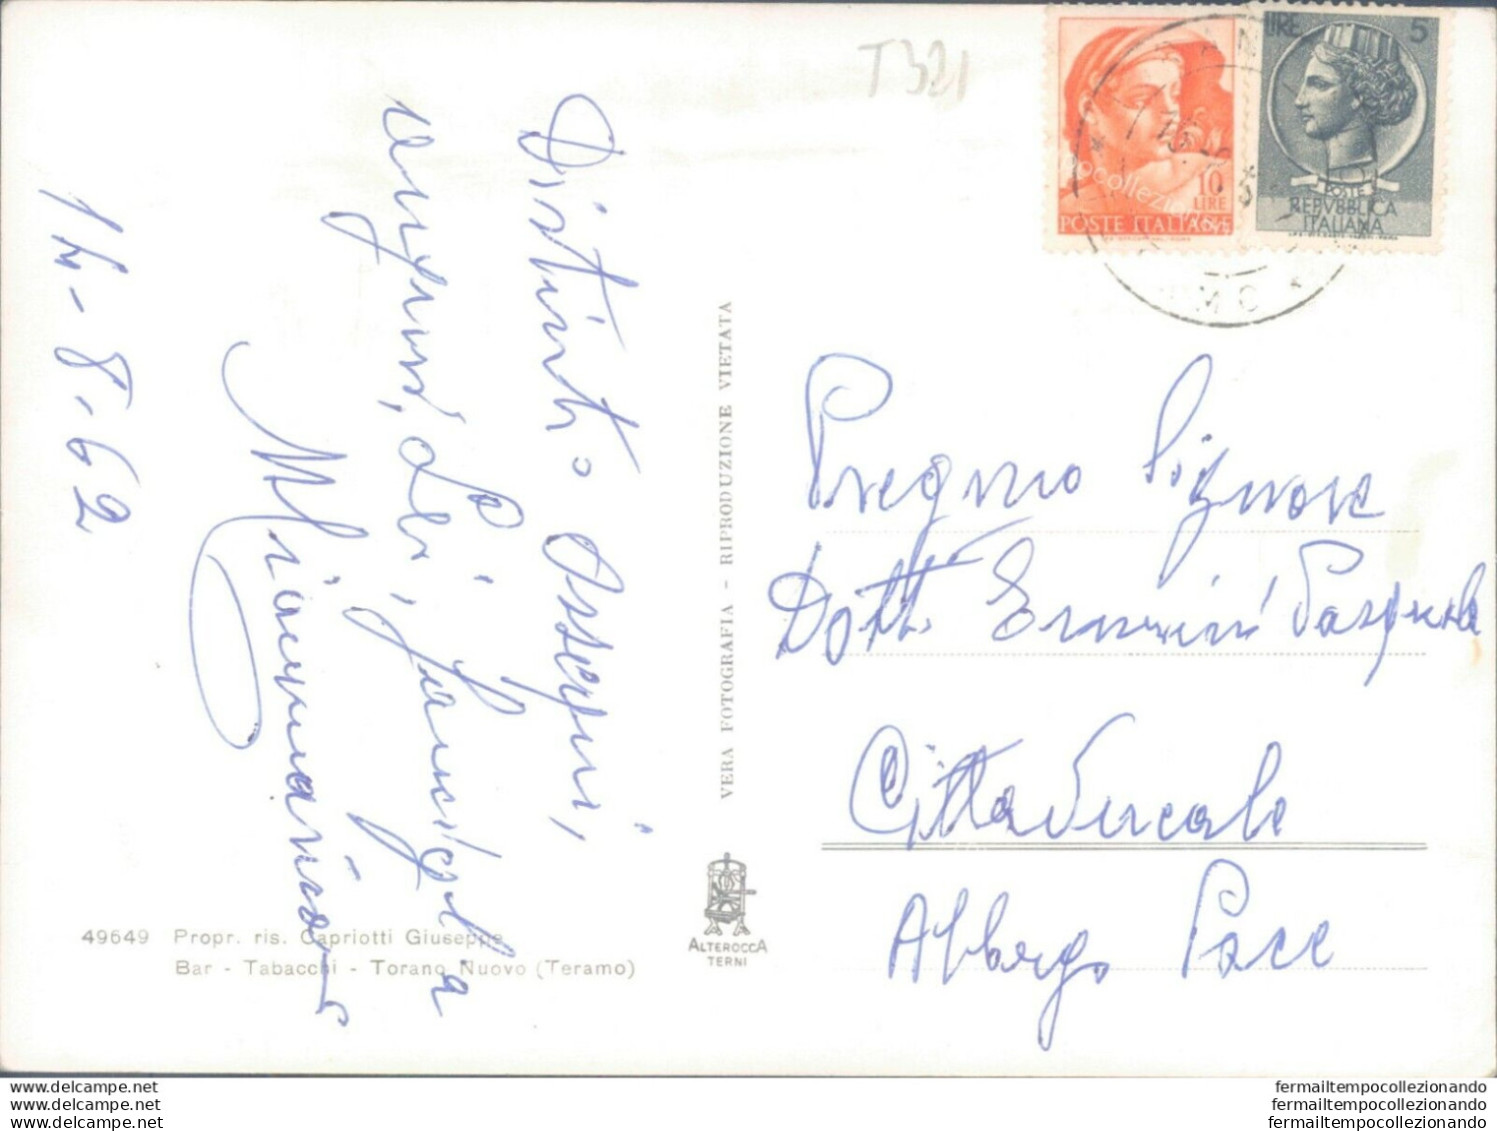 T321
LIRE 5
POSTE
REPVBBLICA
ITALIANA
10
LIRE
POSTE ITALIANE
14-8-62
Distinti ossequi,
auguri, Lei, famiglia
VERA FOTOGRAFIA - RIPRODUZIONE VIETATA
Pregmo Signore
Dott. Pasquale
Cittaducale
Albergo Pace
49649 Propr. ris. Capriotti Giuseppe
Bar - Tabacchi - Torano Nuovo (Teramo)
ALTEROCCA
TERNI
delcampe.net
delcampe.net
delcampe.net
fermailtempocollezionando
fermailtempocollezionando
fermailtempocollezionando